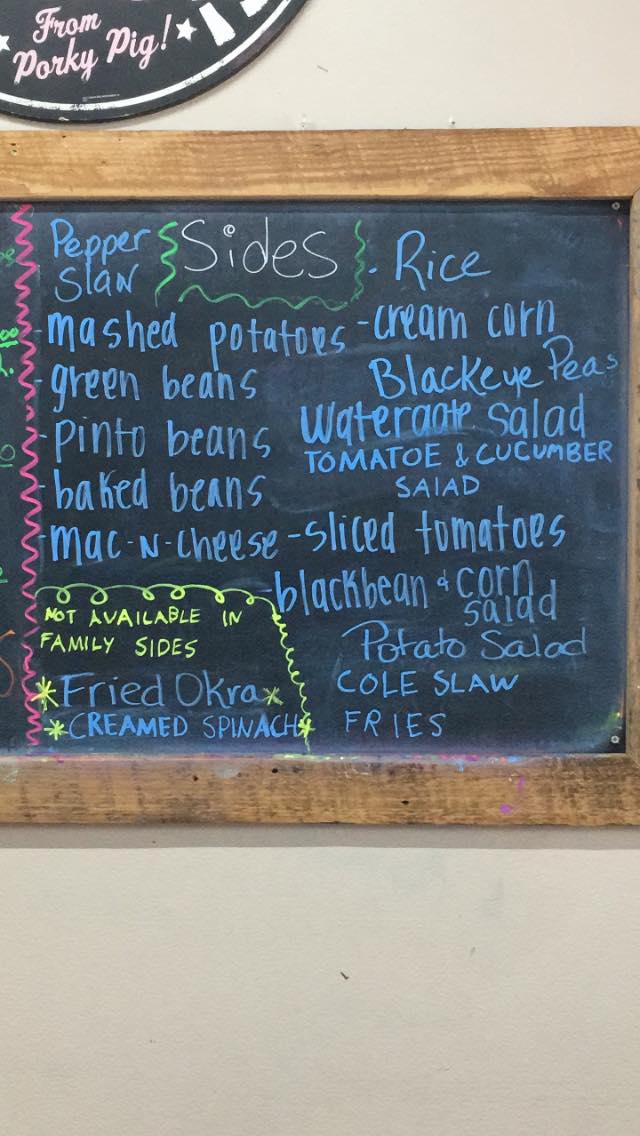 From
Porky Pig!
Sides
Pepper
Slaw
-mashed potatoes
-green beans
-pinto beans
-baked beans
-mac-N-cheese
NOT AVAILABLE IN
FAMILY SIDES
*Fried Okra*
*CREAMED SPINACH*
- Rice
-cream corn
Blackeye Peas
Watergate Salad
TOMATOE & CUCUMBER
SAlAD
-sliced tomatoes
-blackbean & corn
salad
Potato Salad
COLE SLAW
FRIES